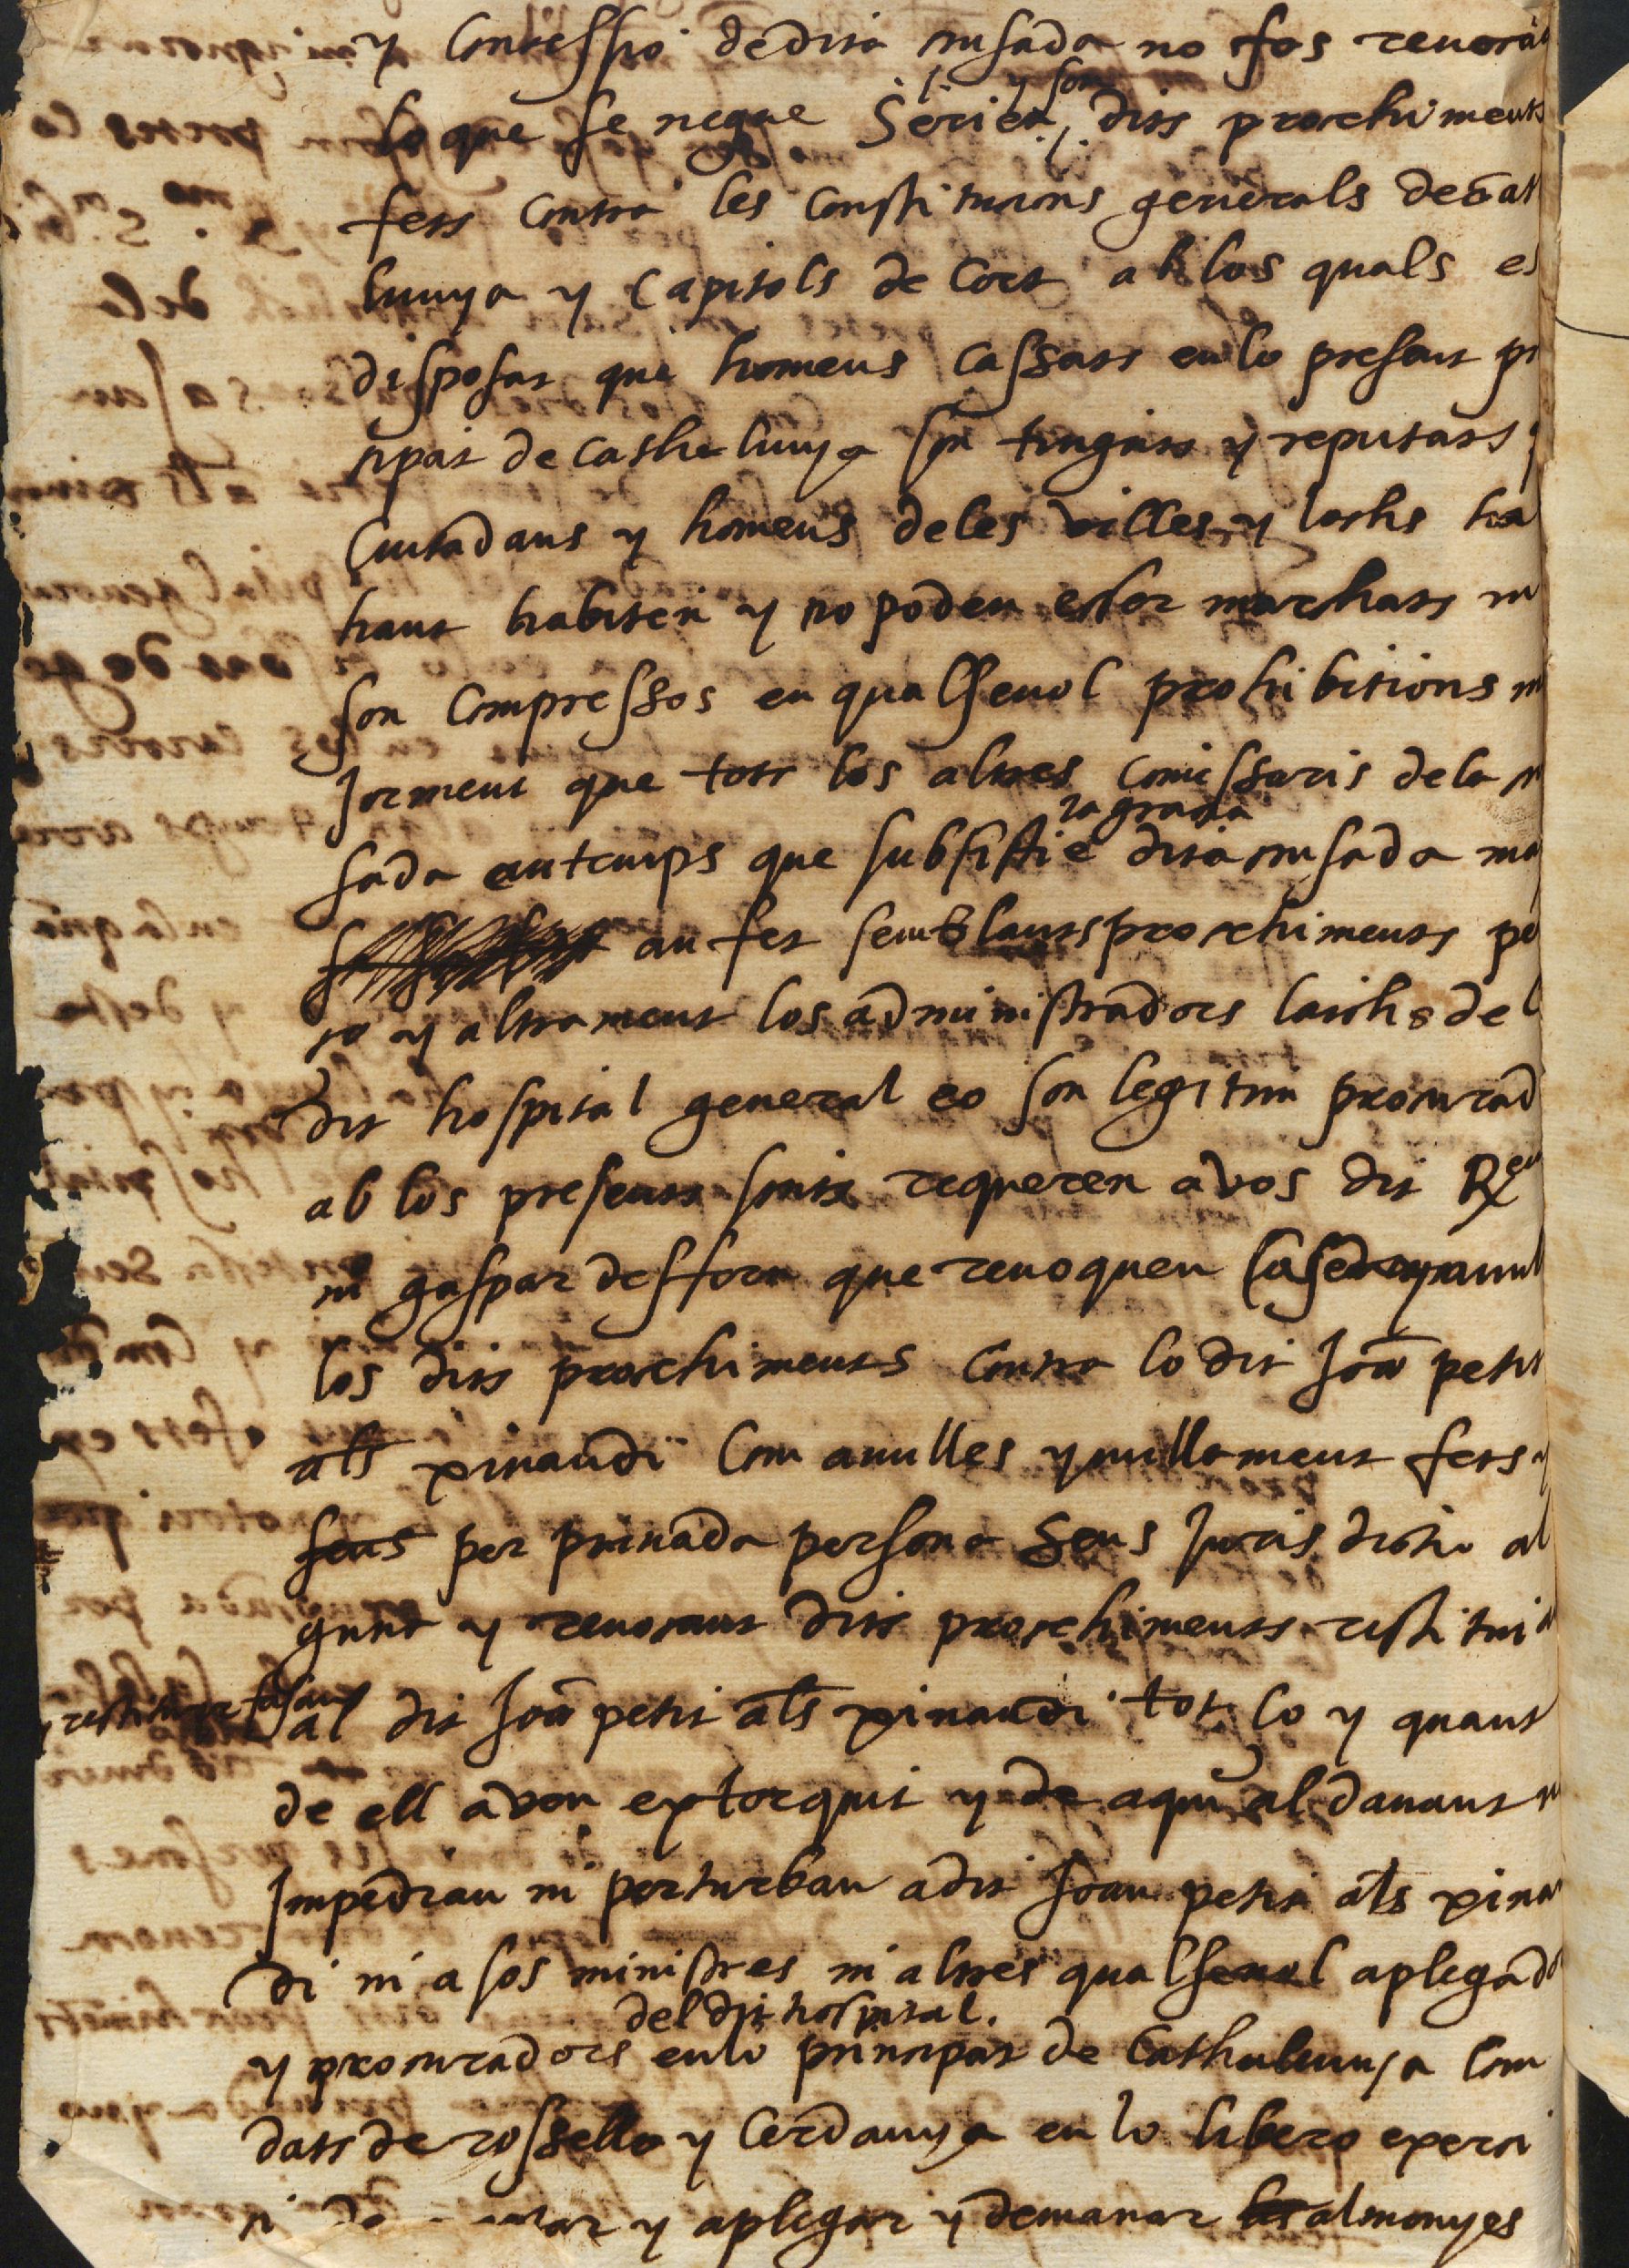 y Concessio de dita crusada no fos revocà
lo que se negue Serien y son dits prochiments
fets contra les constitutions generals de cat
lunya y Capitols de Cort ab los quals es
disposat que homens Cassats en lo present pr
cipat de Cathelunya son tinguts y reputats
Ciutadans y homens de les villes y lochs ha
hont habiten y no poden esser marchats ni
son Compressos en qualsevol prohibitions m
jorment que tots los altres Comissaris de la cr
sada en temps que subsistie la gracia dita crusada ma
an fet semblants prochiments pe
ro y altrament los administradors laichs del
dit hospital general eo son legitim procurad
ab los presents scrits requeren a vos dit R
gaspar desfforn que revoquen Casen y anul
los dits prochiments Contra lo dit Joã petit
als xinaudi Com anulles y nullament fets y
fets per privada persona Sens jurisdictio al
guna y revocant dits prochiments restitui
y restituir fassan al dit Joã petit als xinaudi tot lo y quant
de ell a von extorquit y de aqui al davant
Impedian ni perturban a dit Joan petit als xina
di ni a sos ministres ni altres qualsevol aplegado
y procuradors del dit hospital. en lo principat de Cathalunya Com
dats de rossello y Cerdanya en lo libero exerci
ci de y aplegar y demanar les almonyes